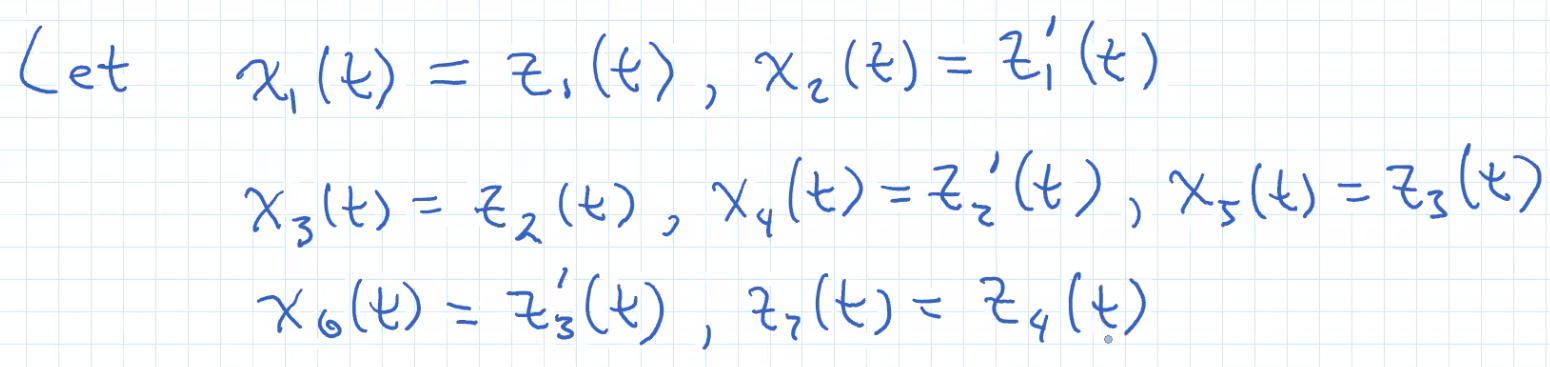 Let x₁(t) = z₁(t), x₂(t) = z₁'(t)
x₃(t) = z₂(t), x₄(t) = z₂'(t), x₅(t) = z₃(t)
x₆(t) = z₃'(t), z₇(t) = z₄(t)